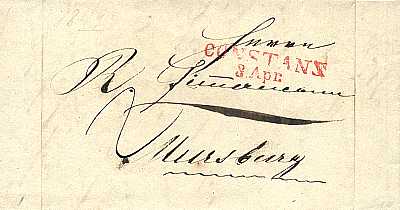 Herrn
CONSTANZ
8 Apr.
R. Zimmermann
Mersburg